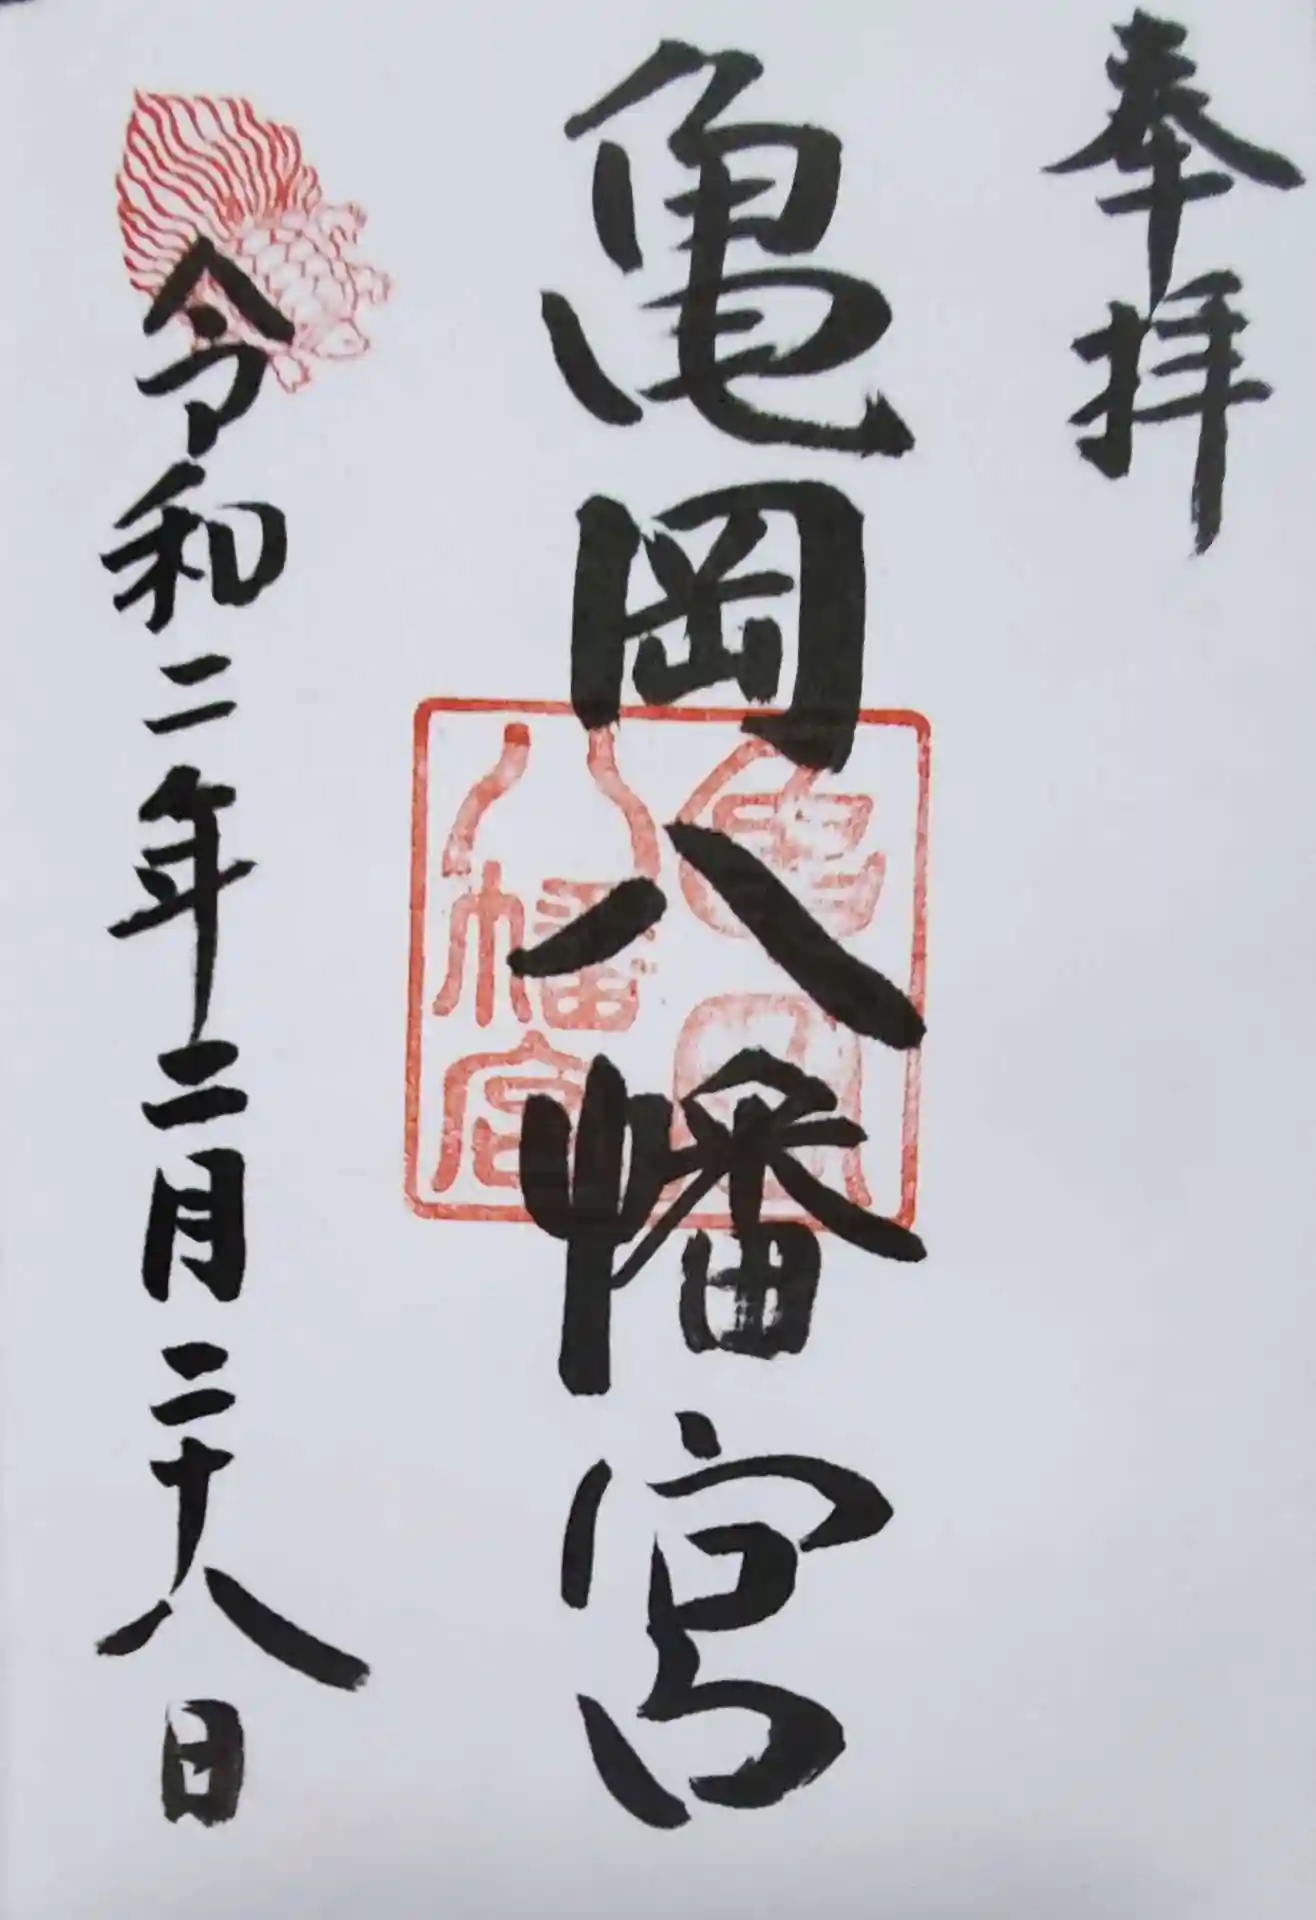 奉拝
亀岡八幡宮
亀岡
八幡宮
令和二年二月二十八日